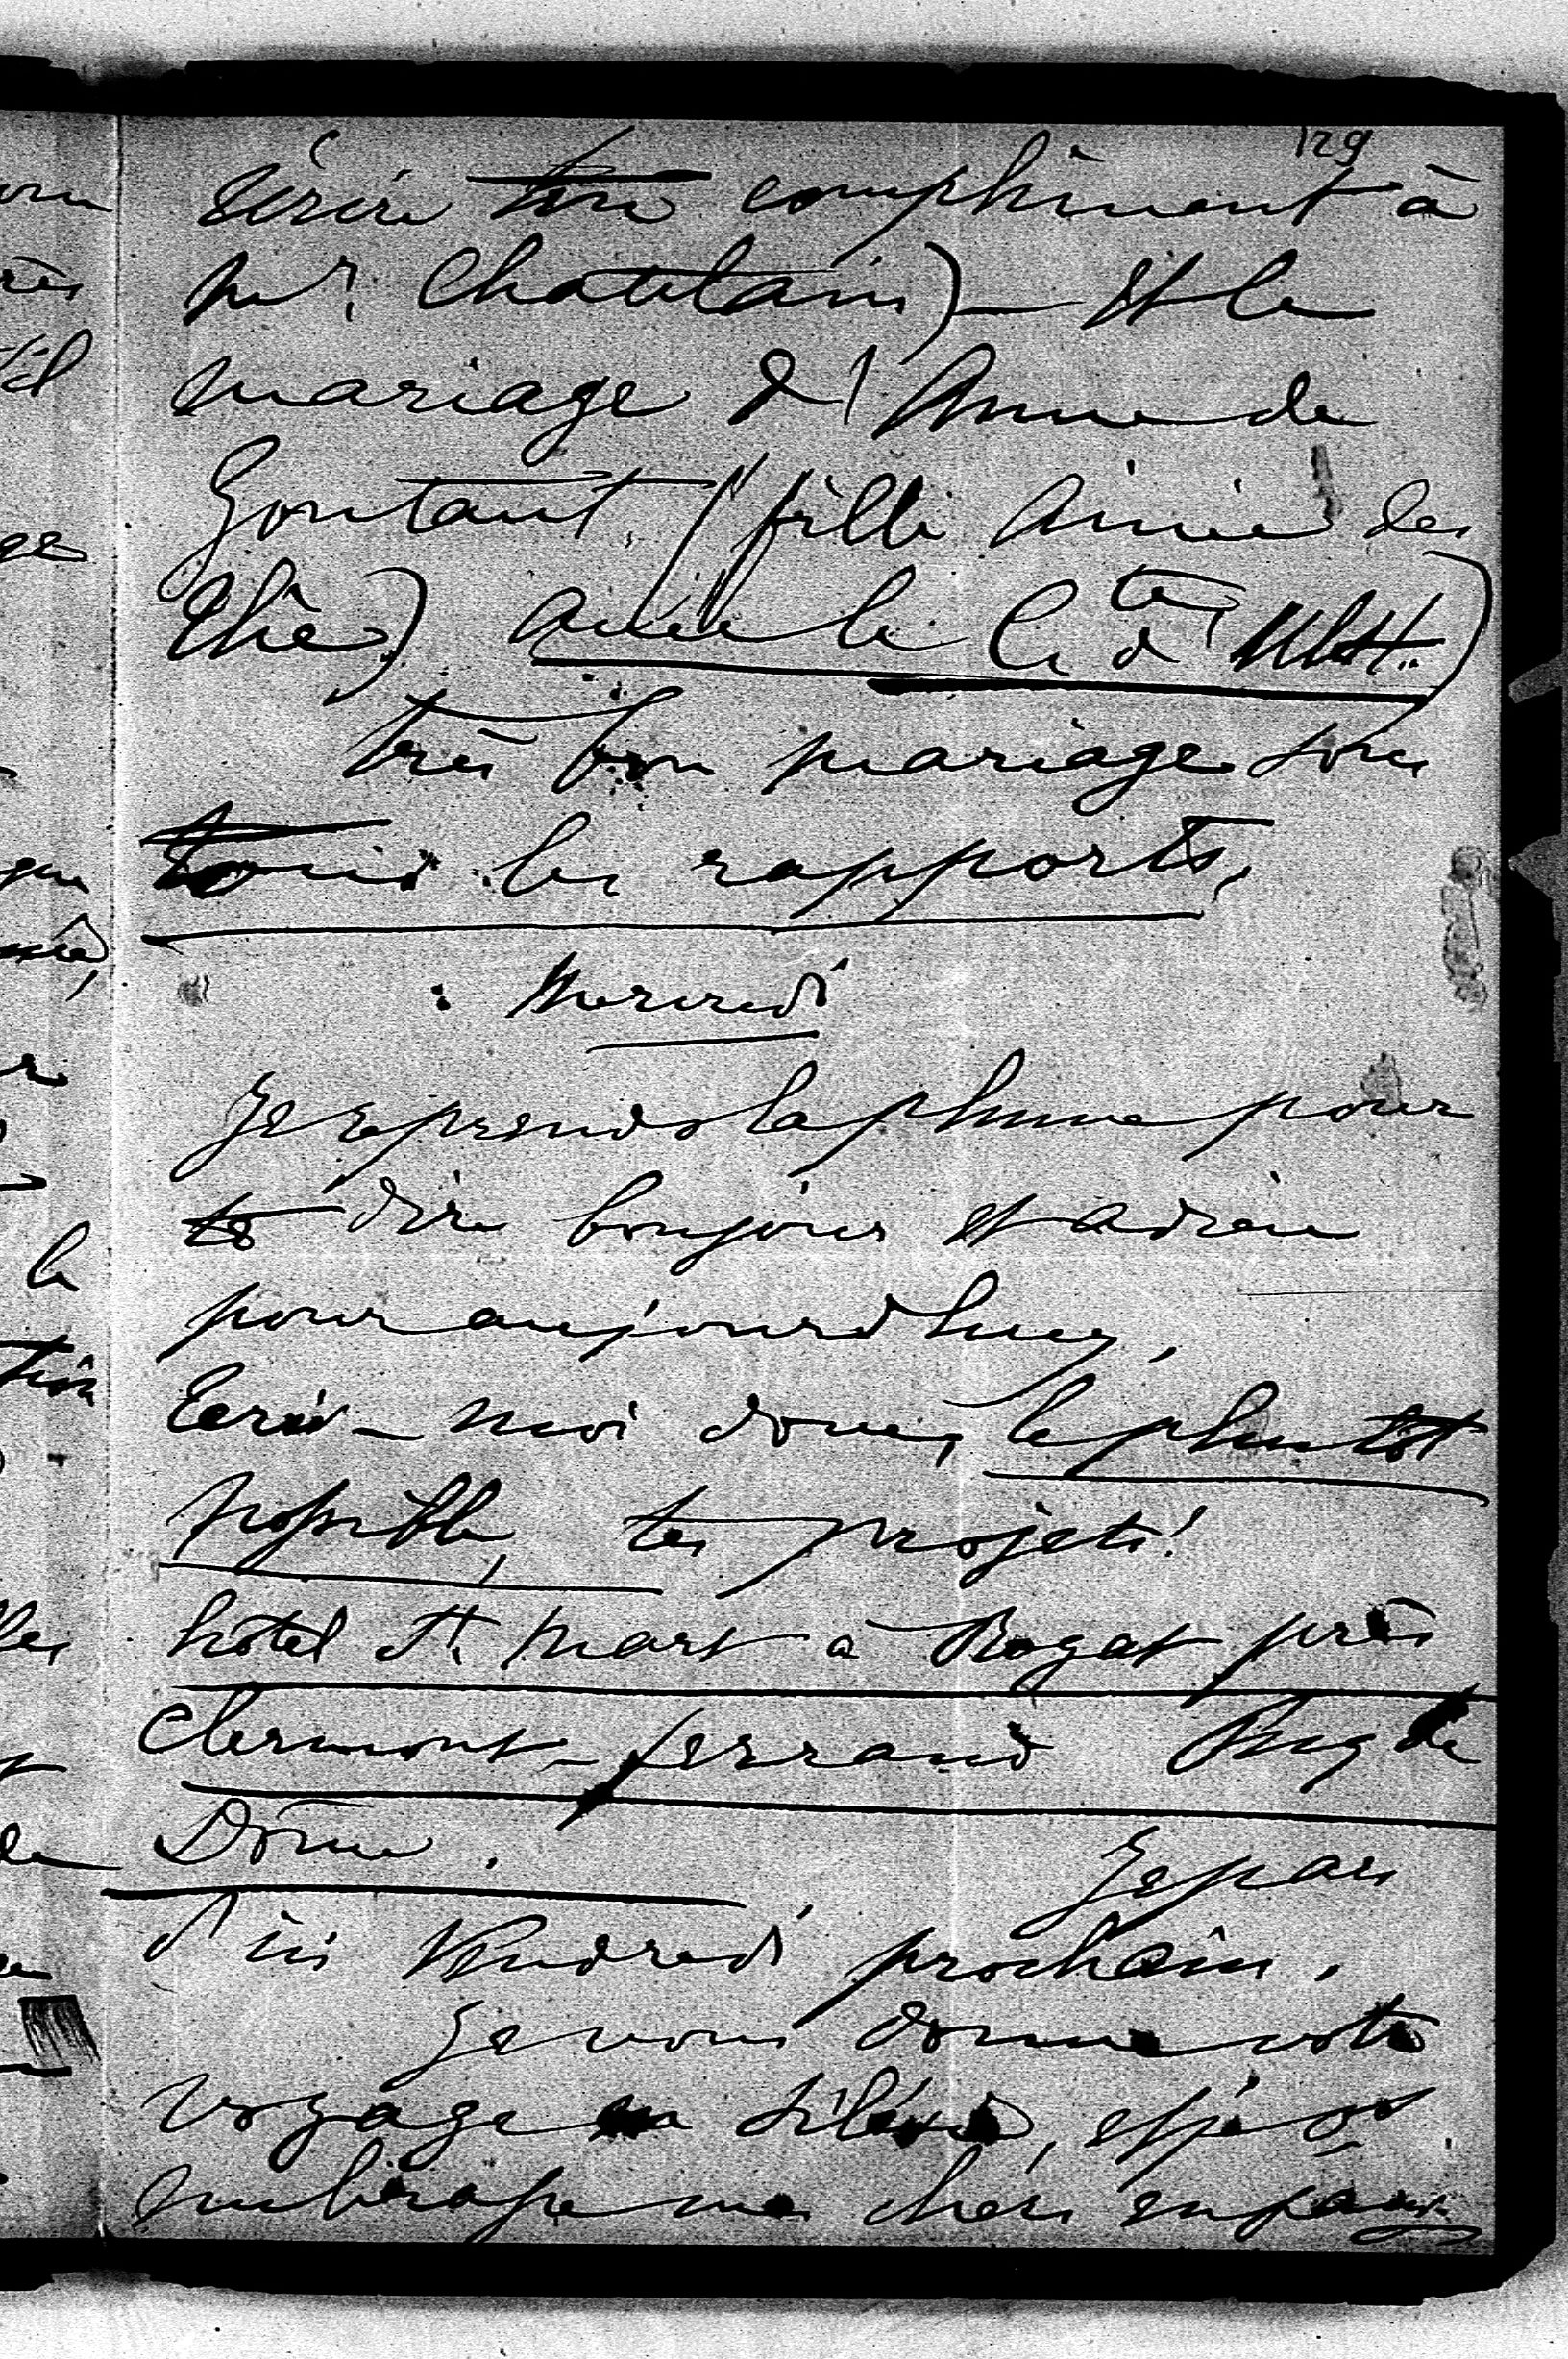 129
écrire ton compliment à
Mr. Chatelain) — et le
mariage d'Anne de
Gontaut, (fille ainée des
Thé) avec le Cte d'
très bon mariage sous
tous les rapports,
Mercredi
Je reprends la plume pour
te dire bonjour et adieu
pour aujourd'huy,
Ecris-moi donc, le plutôt
possible, tes projets!
hôtel St. Mart à Royat près
Clermont-ferrand Puy de
Dôme.
Je pars
d'ici Vendredi prochain.
Je vous donne votre
voyage et je vous
embrasse mes chers enfans